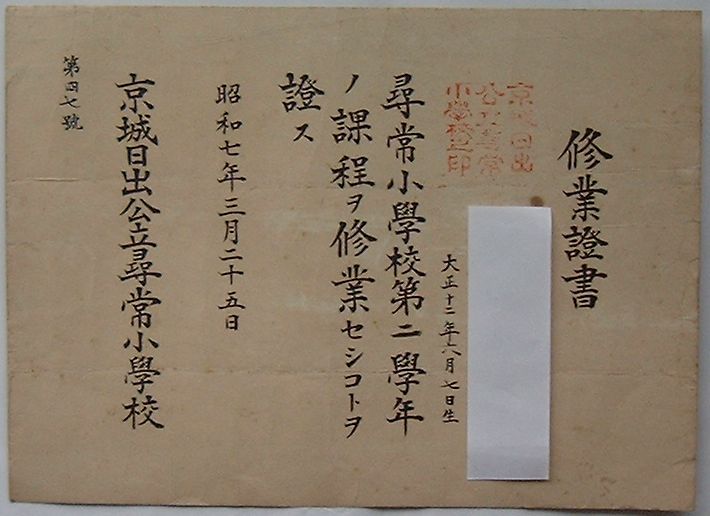 修業證書
京城日出
公立尋常
小學校之印
大正十二年六月七日生
尋常小學校第二學年
ノ課程ヲ修業セシコトヲ
證ス
昭和七年三月二十五日
京城日出公立尋常小學校
第四七號